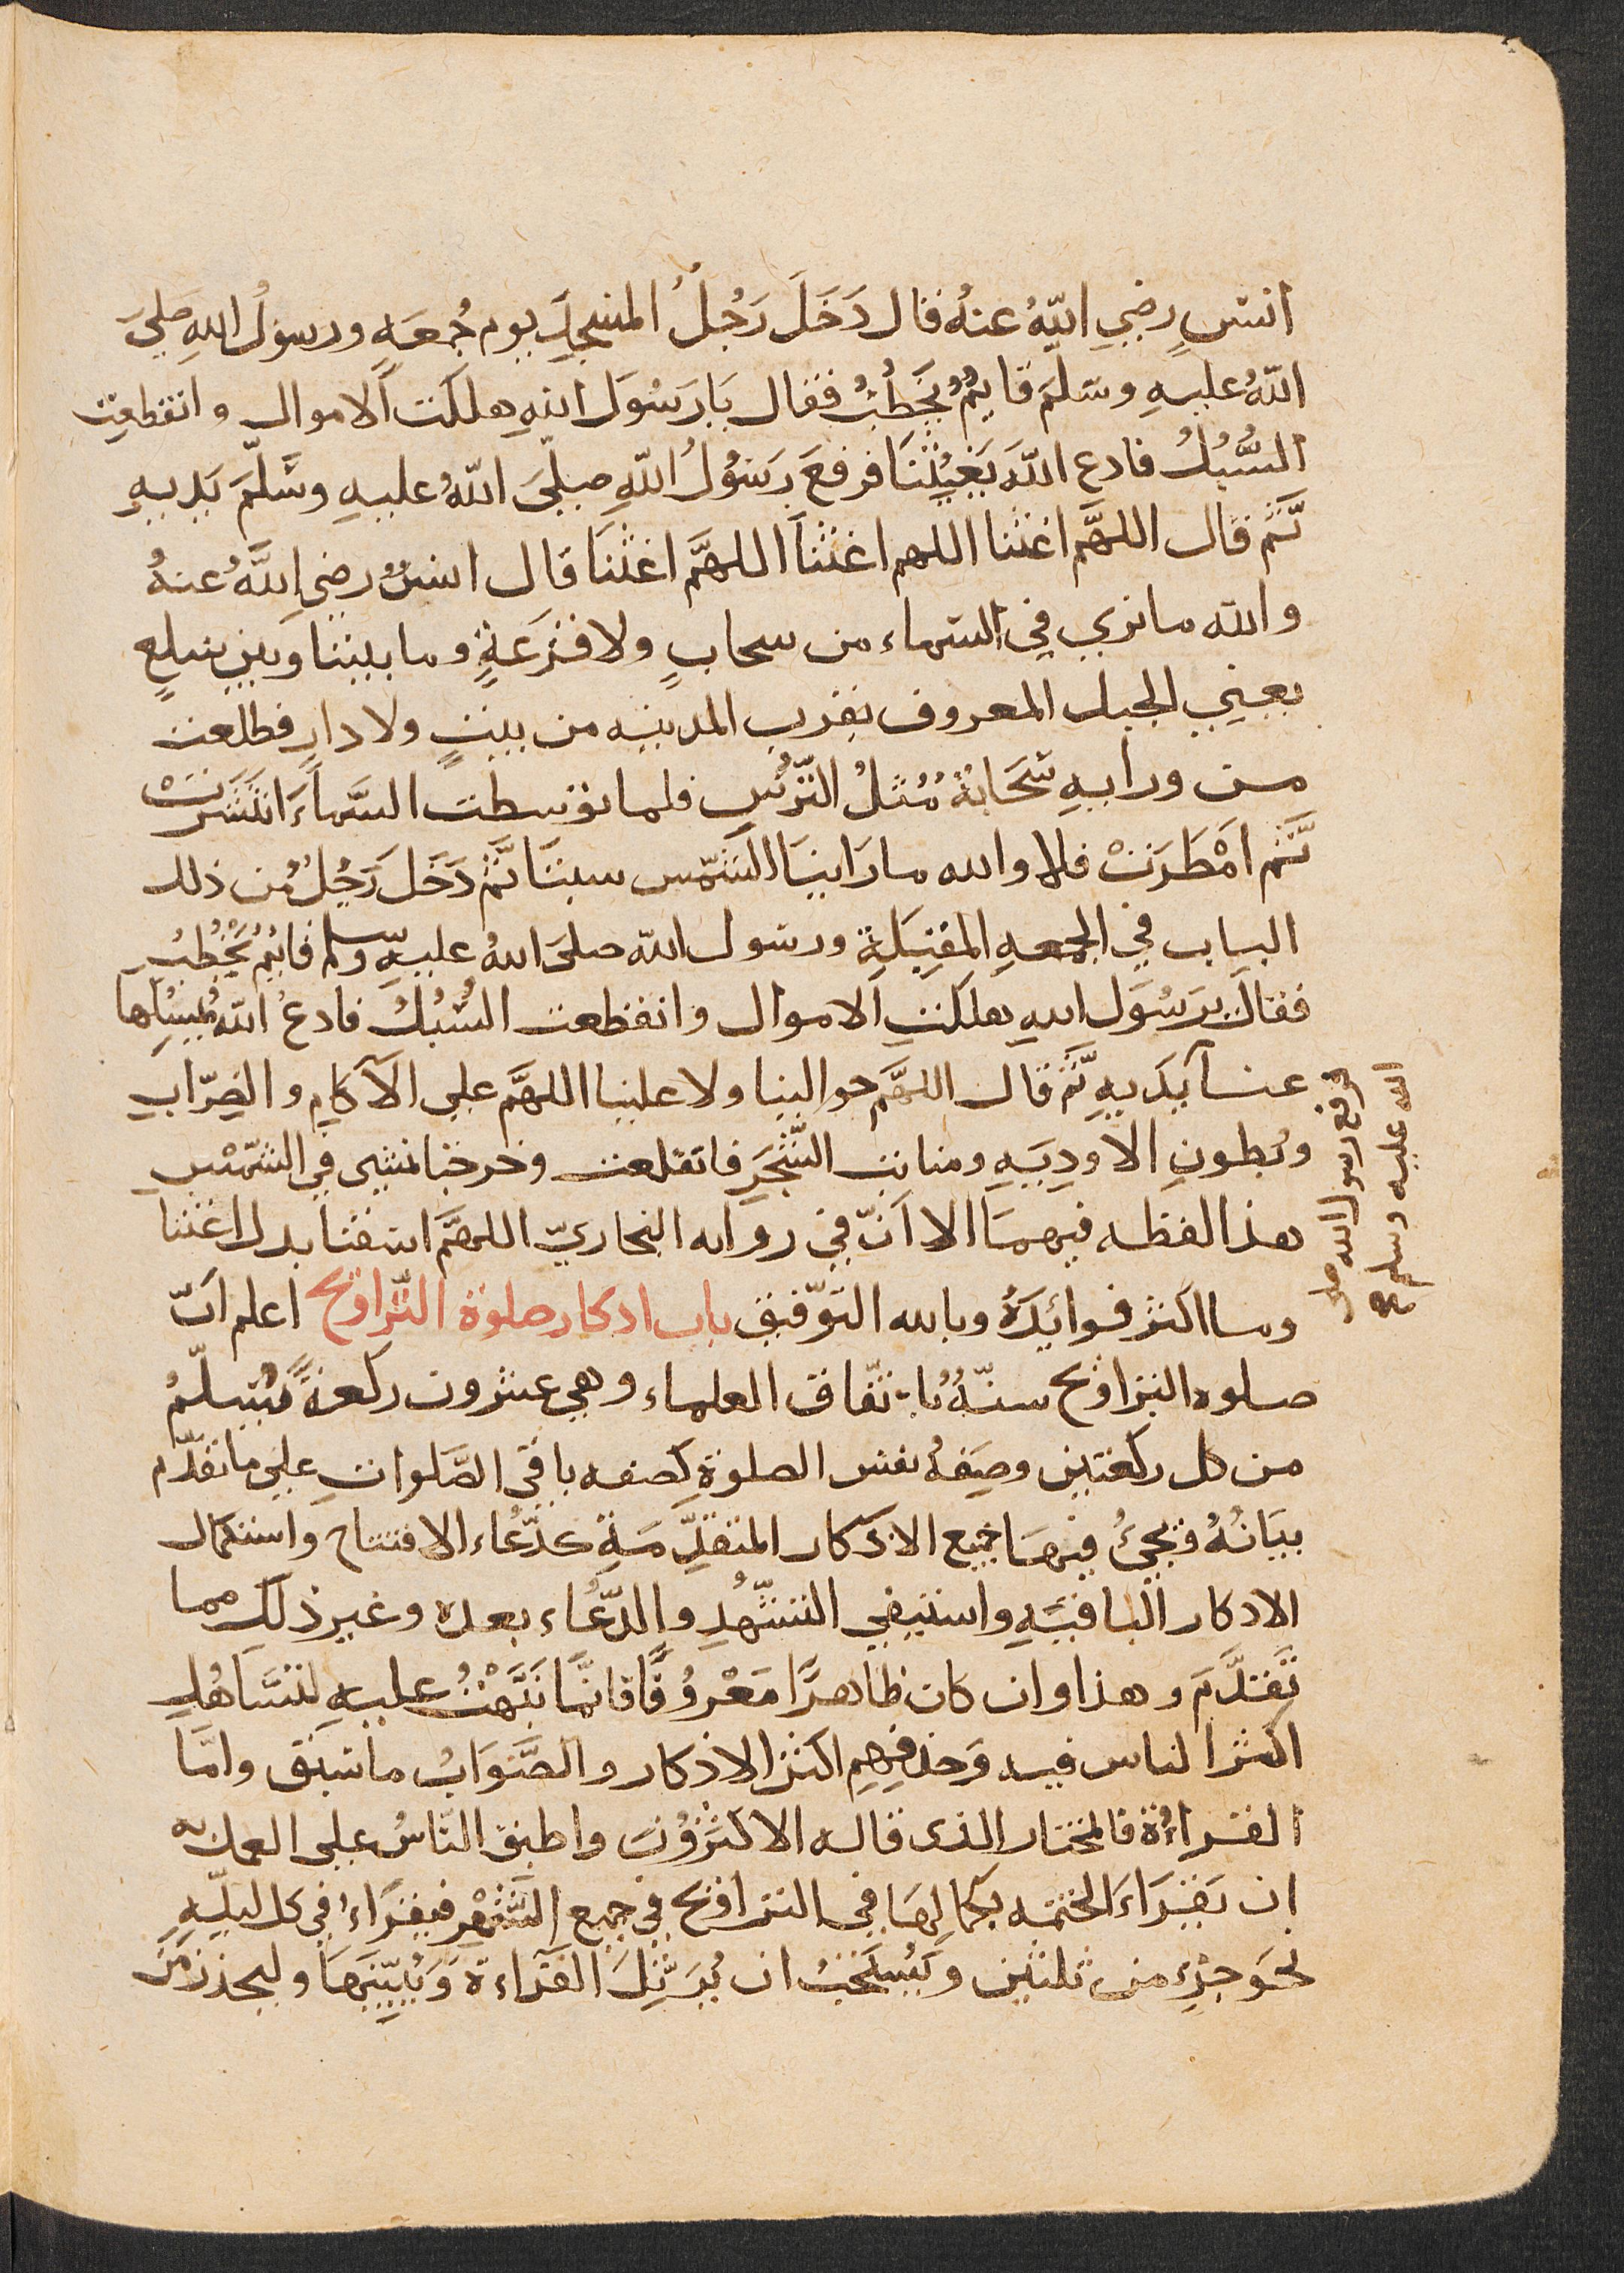 انسٍ رضي اللهُ عنهُ قال دَخَلَ رَجُلٌ المسجدَ يوم جُمعَهٍ ورسولُ اللهِ صَلىَ
اللهُ عليهِ وسَلمَ قايمٌ يخَطُبُ فقال يَا رَسُوَل اللهِ هلكت اَلاموال وانقطعت
السُّبُلُ فادع اللهَ يَغيثُنَا فرفعَ رَسُوُلُ اللهِ صلّىَ اللهُ عليهِ وسَلّمَ يَديهِ
ثَّم قال اللهَّم اغثنا اللهم اغثنَا اللهَّم اغثنَا قال انسٌ رضي اللهُ عنهُ
والله ما نري في السماء من سحابٍ ولا قزَعَةٍ وما بيننا وبين سَلعٍ
يعني الجبل المعروف بقرب المدينه من بيتٍ ولا دارٍ فطلعت
من ورايهِ سَحَابةٌ مُثلُ التّرُسِ فلما توَسطت السَّماءَ انتَشَرتْ
ثَّم امْطَرَتْ فلا والله ما رَاينَا الشمّس سبتَا ثَّم دَخَلَ رَجُلٌ مُن ذلك
الباب في الجمعهِ المقبَلِةِ ورسول الله صلىَ اللهُ عليهِ وسلم قايمٌ يَخْطُبُ
فقالَ يرَسُوَل اللهِ هلكَتِ اَلاموال وانقطعت السُبُلُ فادعُ اللهَ يمُسِكُها
عنا يَديهِ ثَّم قال اللهَّم حوالينا ولا علينا اللهَّم على الآكامِ والضرّابِ
وبُطونِ الاودِيَهِ ومنابت الشَّجَرِ فانقلعت وخرجنا نمشى في الشمّسِ
هذا لفظه فيهمَا الا اَنّ في روايه البخاريّ اللهَّم اسقنا بدل اغثنا
وما اكثر فوائِدَهُ وبالله التوّفيق باب ادكار صلوة التّراويح اعلم اَنّ
صلوه التراويح سنّهٌ باتّفاق العلماء وهي عشرون ركعةً يُسلّمُ
من كل ركعتين وصِفَهُ نفس الصلوةِ كصفه باقي الصَّلوات علي ما تقدّم
بيَانُهُ ويجيُ فيهَا جميع الاذكار المتقدِّمَةِ كدّعُاء الافتتاح واستكمال
الادكار الباقيَهِ واستيفي التشّهدِ والدّعُاء بعده وغير ذلك مما
تَقدَّم وهذا وان كان ظاهرًا مَعْرُوُفًا فانمّا نَبَّهْتُ عليهِ لتسَاهُلِ
اكثر الناس فيه وَحذفِهِم اكثر الاذكار والصَّوَابُ ما سَبق وامَّا
القراءُة فالمختار الذى قاله الاكثروُن واطبق الناسُ على العمل به
ان يَقرَاءَ الختمه بكمالِهَا في التراويح في جميع الشَّهْرِ فيقرَاءُ في كل ليلهِ
نحوَ جزءٍ من ثلثين ويَسُتحَبُ ان يُرَتِّلَ القرَاءة وَيُبيّنَهَا وليحذر منَ
فرفع رسول الله صلى
الله عليه وسلم صح